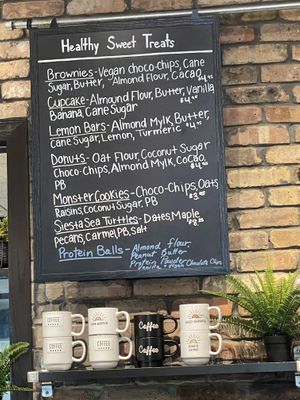 Healthy Sweet Treats
Brownies - Vegan choco-chips, Cane
Sugar, Butter, Almond Flour, Cacao
Cupcake - Almond Flour, Butter, Vanilla
Banana, Cane Sugar
Lemon Bars - Almond Mylk, Butter,
Cane Sugar, Lemon, Turmeric
Donuts - Oat Flour, Coconut Sugar
Choco-Chips, Almond Mylk, Cacao,
PB
Monster Cookies - Choco-Chips, Oats
Raisins, Coconut Sugar, PB
Siesta Sea Turtles - Dates, Maple
pecans, Carmel, PB, Salt
Protein Balls - Almond flour
Peanut Butter
Protein Powder
Vanilla + Vegan Chocolate Chips
COFFEE
COFFEE
COFFEE
Coffee
Coffee